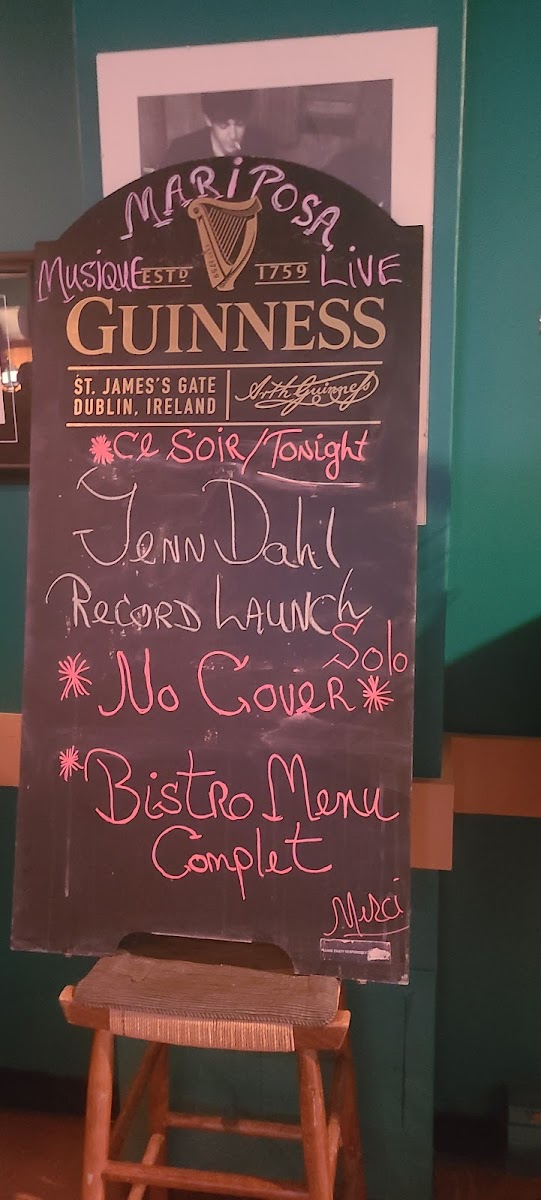 MARiPOSA
MUSiQUE ESTD 1759 LiVE
GUINNESS
ST. JAMES'S GATE
DUBLIN, IRELAND
Arth Guinness
*CE SOIR/TONIGHT
JENN DAHL
RECORD LAUNCH
Solo
*NO COVER*
*BISTRO MENU
COMPLET
Merci
PLEASE ENJOY RESPONSIBLY